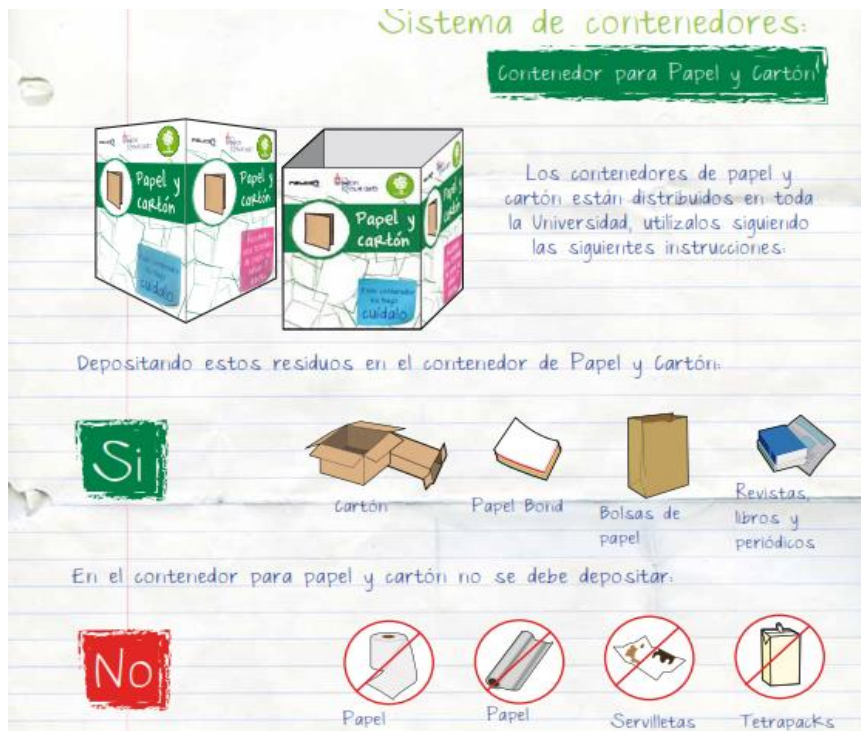 Sistema de contenedores:
Contenedor para Papel y Cartón
Papel y
cartón
Papel y
cartón
Papel y
cartón
Papel y
cartón
cuídalo
cuídalo
Los contenedores de papel y
cartón están distribuidos en toda
la Universidad, utilizalos siguiendo
las siguientes instrucciones:
Depositando estos residuos en el contenedor de Papel y Cartón:
Si
Cartón
Papel Bond
Bolsas de
papel
Revistas,
libros y
periódicos
En el contenedor para papel y cartón no se debe depositar:
No
Papel
Papel
Servilletas
Tetrapacks